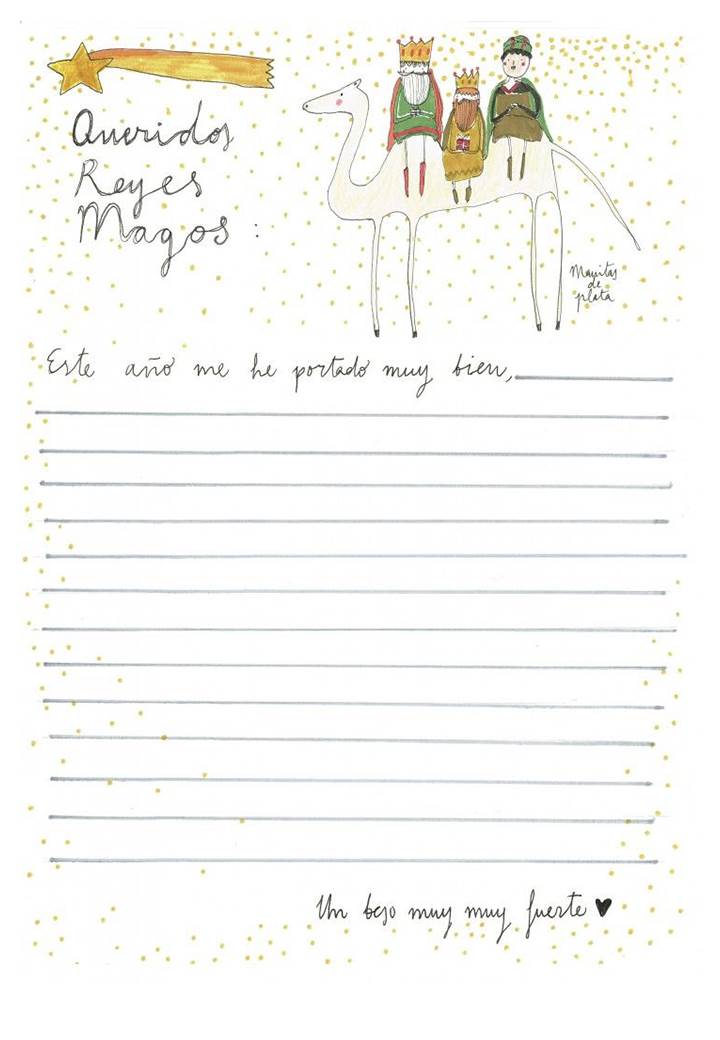 Queridos
Reyes
Magos :
Manitas
de
plata
Este año me he portado muy bien,
Un beso muy muy fuerte ♥